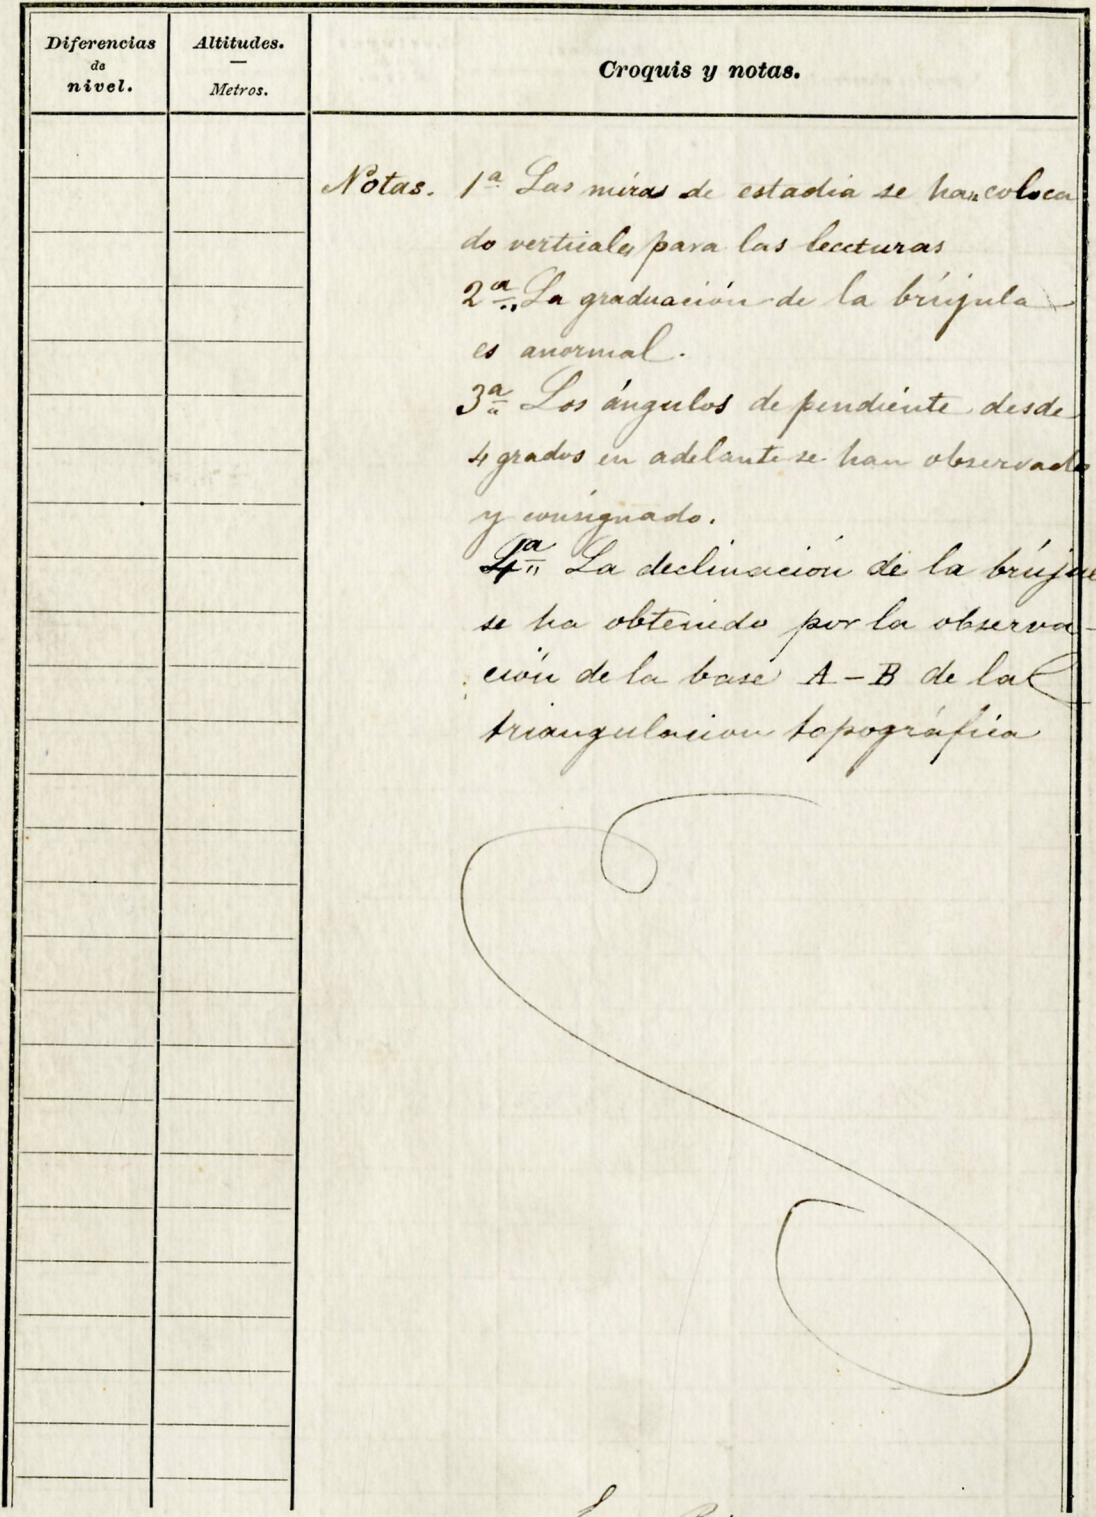 Diferencias
de
nivel.
Altitudes.
Metros.
Croquis y notas.
Notas. 1ª Las miras de estadia se han coloca
do verticales para las lecturas
2ª La graduación de la brújula
es anormal.
3ª Los ángulos de pendiente desde
4 grados en adelante se han observado
y consignado.
4ª La declinación de la brújula
se ha obtenido por la observa-
ción de la base A-B de la
triangulacion topográfica